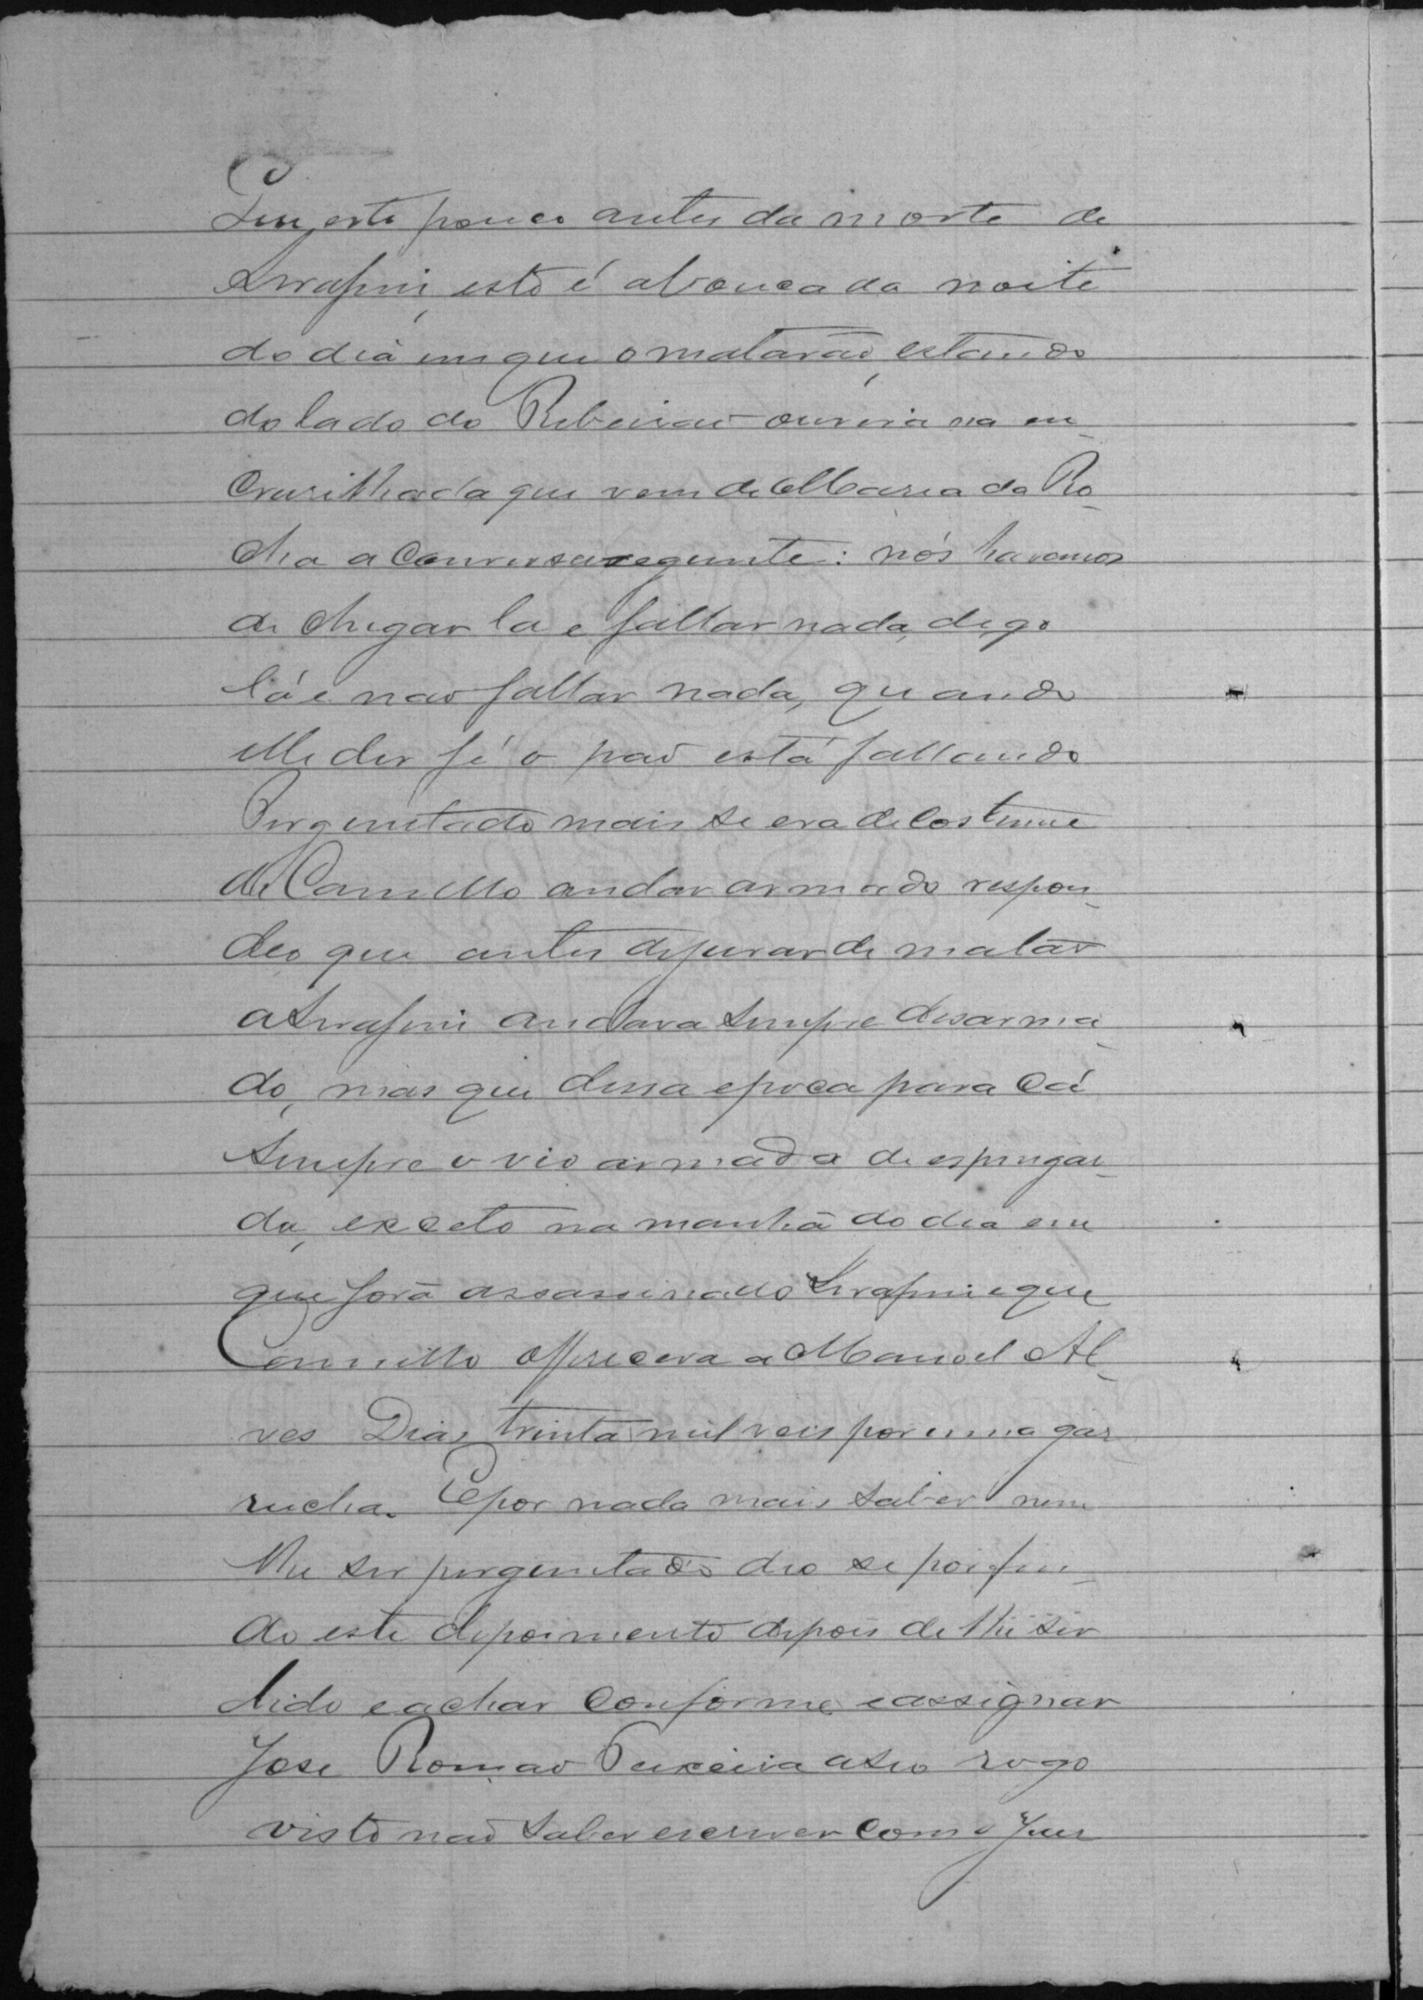 que este pouco antes da morte de
Serafim, isto é a bouca da noite
do dia em que o matarão, estando
do lado do Ribeirão ouvira na en-
crusilhada que vem de Maria da Ro-
cha a conversa seguinte: nós havemos
de chegar la e fallar nada, digo
lá e não fallar nada, quando
elle der fé o páo está fallando
Perguntado mais se era de costume
de Camillo andar armado respon-
deo que antes de jurar de matar
a Serafim andava sempre desarma-
do, mas que dessa epoca para cá
sempre o vio armado de espingar-
da, exceto na manhã do dia em
que fora assassinado Serafim e que
Camillo offerecera a Manoel Al-
ves Dias trinta mil reis por uma gar
rucha. E por nada mais saber nem
lhe ser perguntado deo se por fin-
do este depoimento depois de lhe ser
lido e achar conforme e assignar
Jose Romão Teixeira a seo rogo
visto não saber escrever com o Juis